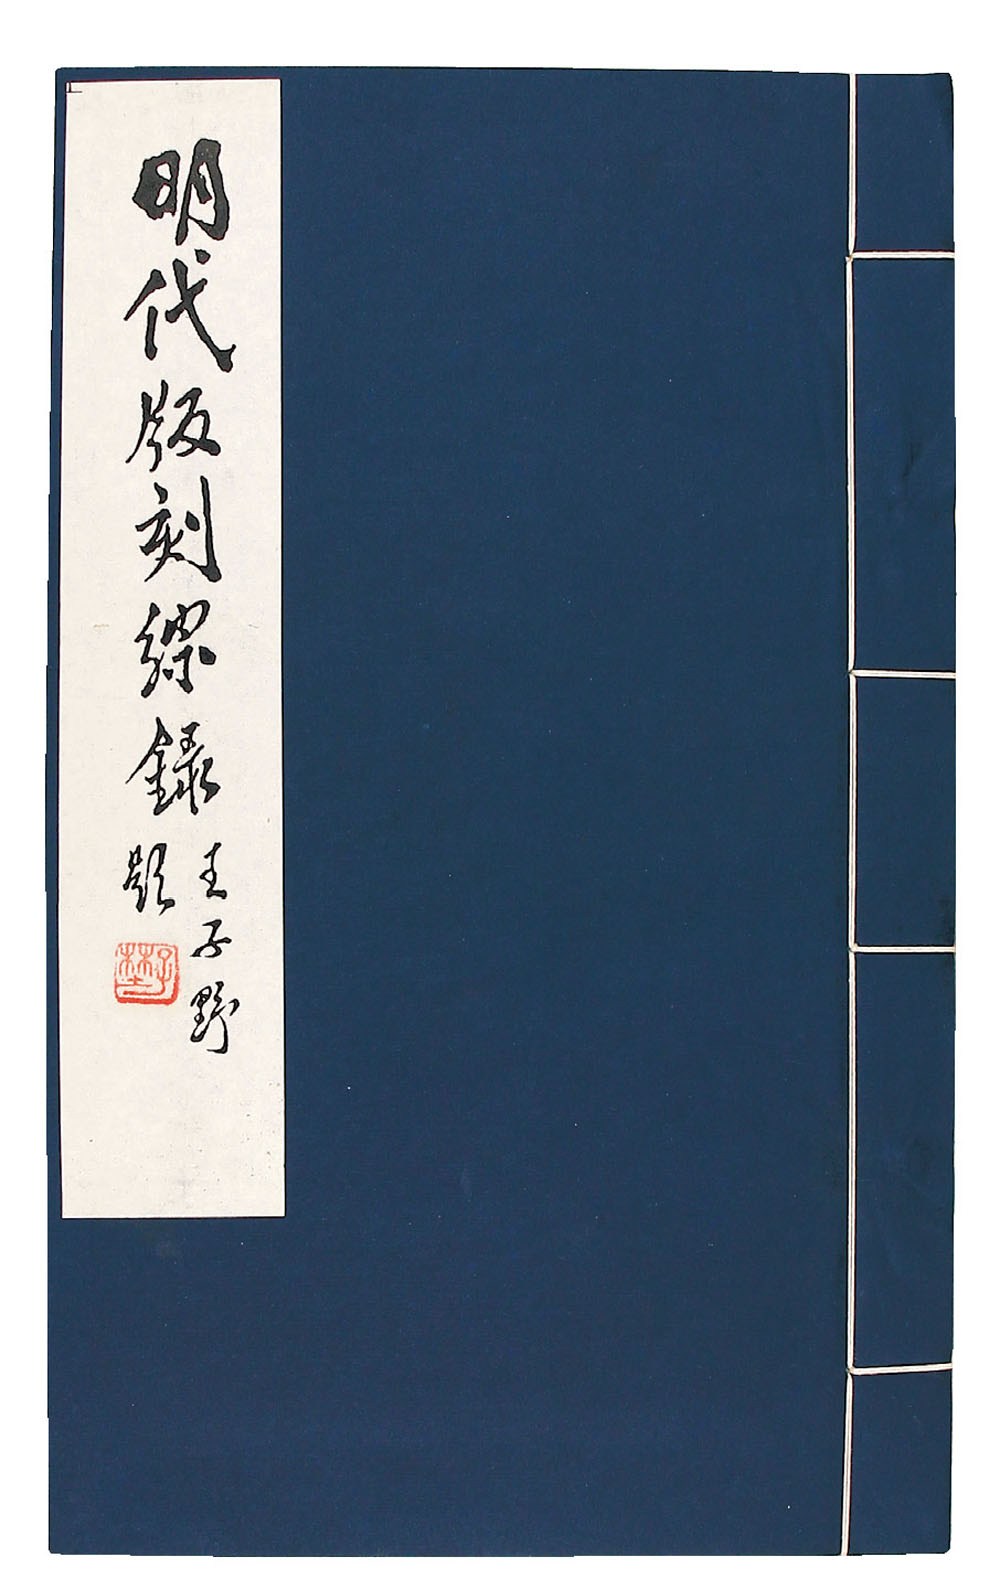 明代版刻綜錄
王子野
題
子埜